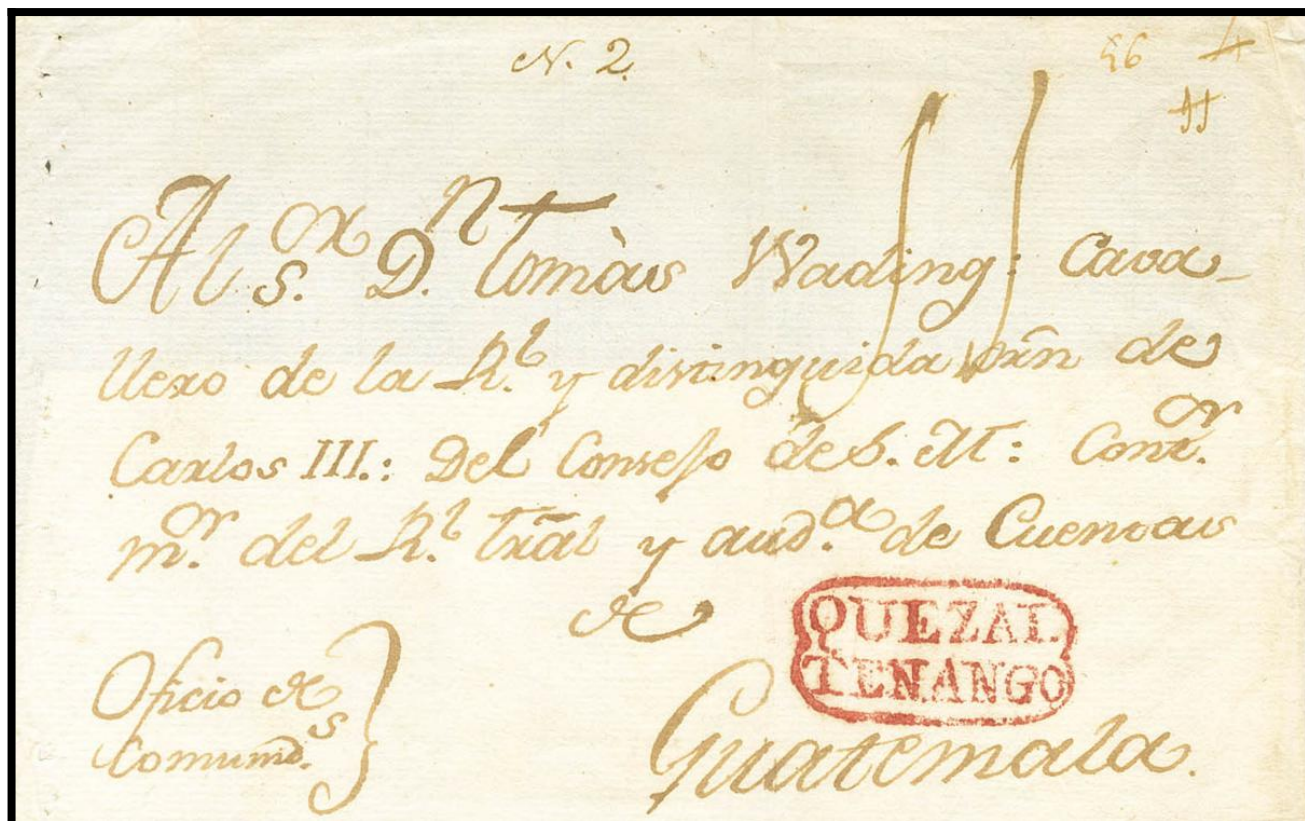 N. 2.
56 4
11
Al s.or D.n Tomàs Wading: Cava-
llero de la R.l y distinguida orn̄ de
Carlos III.: Del Consejo de S. M: Cont.or
m.or del R.l trāl y aud.a de Cuentas
de
QUEZAL
TENANGO
Oficio de
Comunid̄.s
Guatemala.